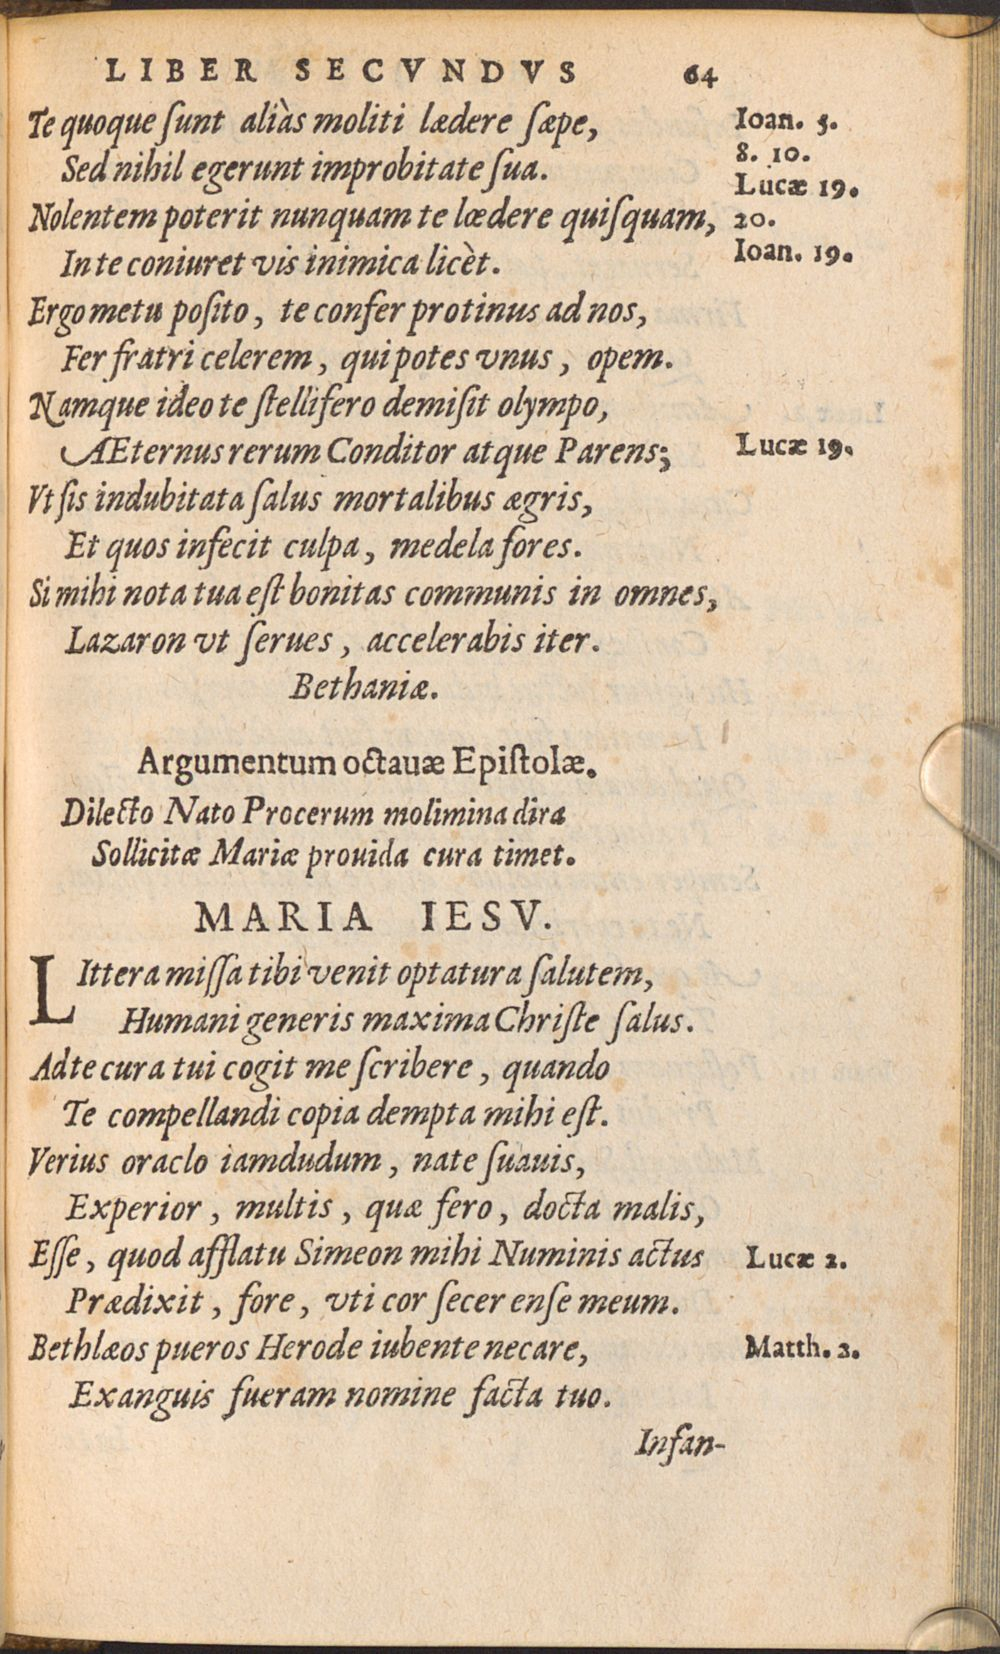 LIBER SECVNDVS 64
Te quoque ſunt aliàs moliti lædere ſæpe,
Ioan. 5.
Sed nihil egerunt improbitate ſua.
8. 10.
Lucæ 19.
Nolentem poterit nunquam te lœdere quiſquam,
20.
In te coniuret vis inimica licèt.
Ioan. 19.
Ergo metu poſito, te confer protinus ad nos,
Fer fratri celerem, qui potes vnus, opem.
Namque ideo te ſtellifero demiſit olympo,
Æternus rerum Conditor atque Parens;
Lucæ 19.
Vt ſis indubitata ſalus mortalibus ægris,
Et quos infecit culpa, medela fores.
Si mihi nota tua eſt bonitas communis in omnes,
Lazaron vt ſerues, accelerabis iter.
Bethaniæ.
Argumentum octauæ Epiſtolæ.
Dilecto Nato Procerum molimina dira
Sollicitæ Mariæ prouida cura timet.
MARIA IESV.
LIttera miſſa tibi venit optatura ſalutem,
Humani generis maxima Chriſte ſalus.
Ad te cura tui cogit me ſcribere, quando
Te compellandi copia dempta mihi eſt.
Verius oraclo iamdudum, nate ſuauis,
Experior, multis, quæ fero, docta malis,
Eſſe, quod afflatu Simeon mihi Numinis actus
Lucæ 2.
Prædixit, fore, vti cor ſecer enſe meum.
Bethlæos pueros Herode iubente necare,
Matth. 2.
Exanguis fueram nomine facta tuo.
Infan-